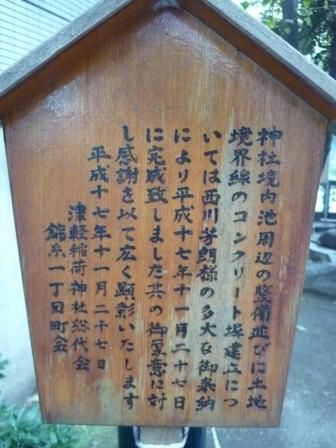 神社境内池周辺の整備並びに土地
境界線のコンクリート塀建立につ
いては西川芳朗様の多大な御奉納
により平成十七年十一月二十七日
に完成致しました其の御厚意に対
し感謝を以て広く顕彰いたします
平成十七年十一月二十七日
津軽稲荷神社総代会
錦糸一丁目町会